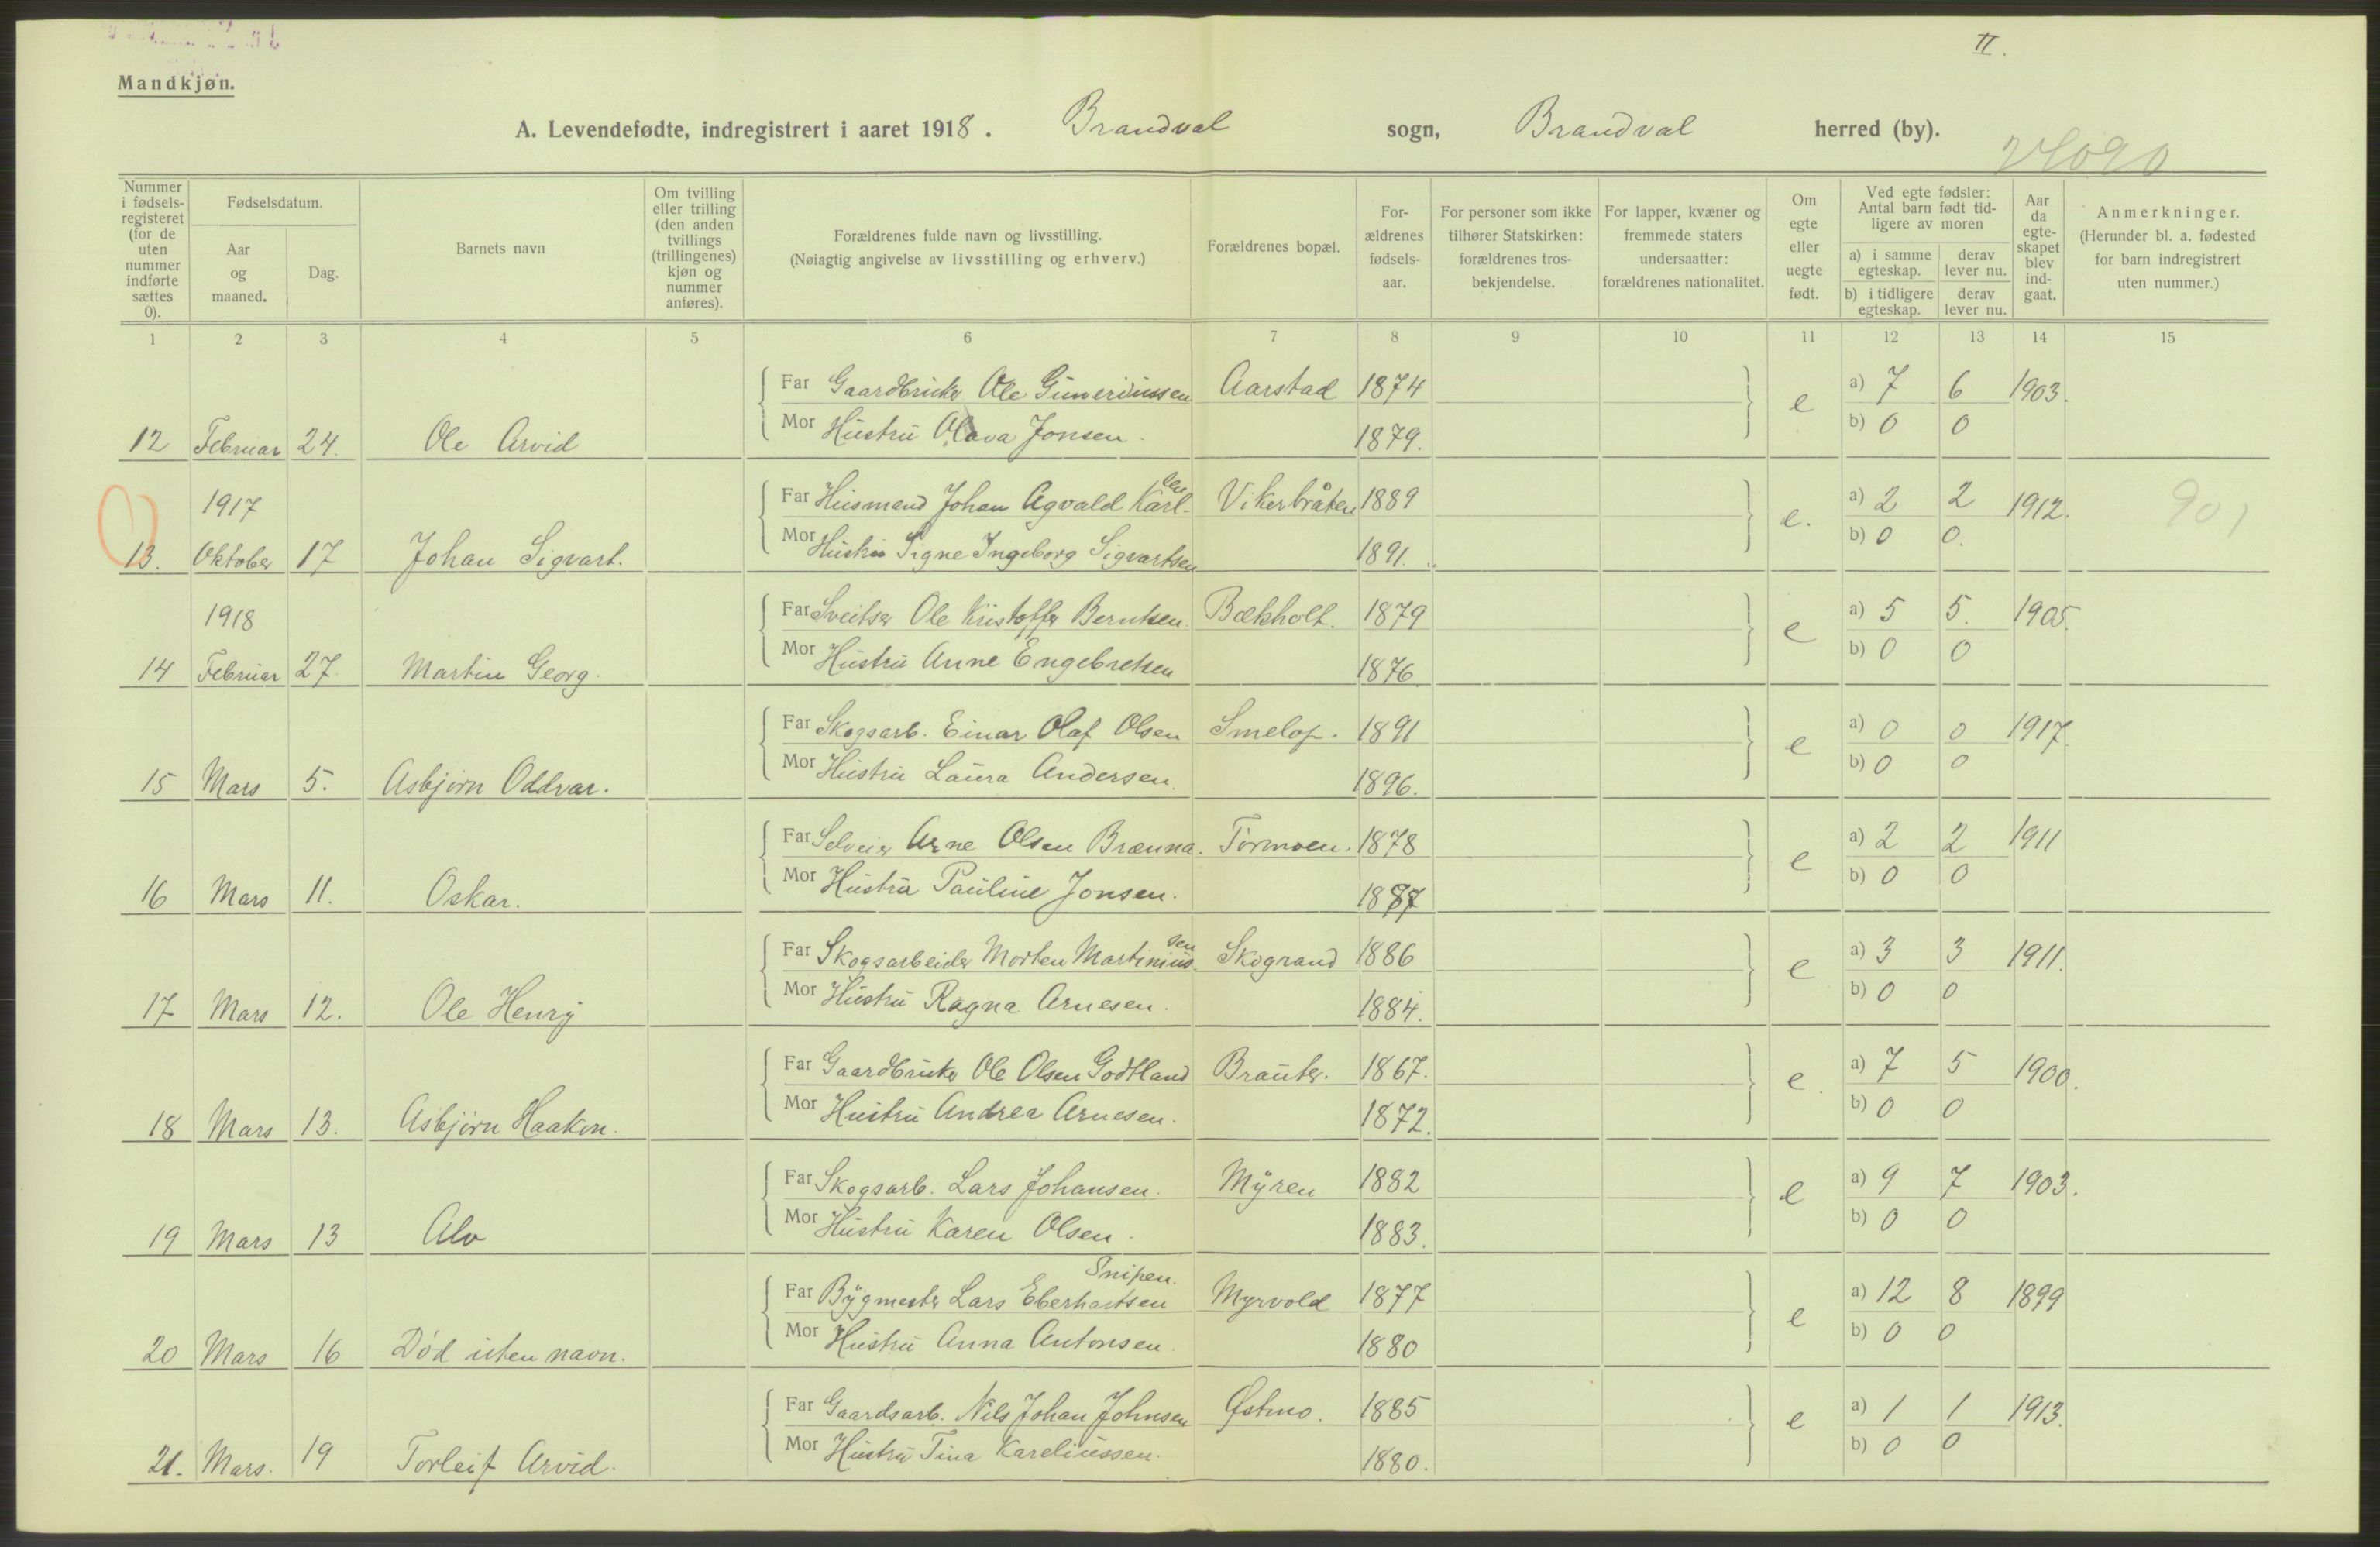 II.
Mandkjøn.
A. Levendefødte, indregistrert i aaret 1918. Brandval sogn, Brandval herred (by).
Nummer i fødsels-registeret (for de uten nummer indførte sættes 0).
Fødselsdatum.
Aar og maaned.
Dag.
Barnets navn
Om tvilling eller trilling (den anden tvillings (trillingenes) kjøn og nummer anføres).
Forældrenes fulde navn og livsstilling.
(Nøiagtig angivelse av livsstilling og erhverv.)
Forældrenes bopæl.
For-ældrenes fødsels-aar.
For personer som ikke tilhører Statskirken: forældrenes tros-bekjendelse.
For lapper, kvæner og fremmede staters undersaatter: forældrenes nationalitet.
Om egte eller uegte født.
Ved egte fødsler: Antal barn født tid-ligere av moren
a) i samme egteskap. derav lever nu.
b) i tidligere egteskap. derav lever nu.
Aar da egte-skapet blev ind-gaat.
Anmerkninger.
(Herunder bl. a. fødested for barn indregistrert uten nummer.)
1 2 3 4 5 6 7 8 9 10 11 12 13 14 15
Far Gaardbruker Ole Guneriussen Aarstad 1874 e a) 7 6 1903.
Mor Hustru Olava Jonsen. 1879. b) 0 0
12 Februar 24. Ole Arvid
1917 Far Husmand Johan Agvald Karl-sen Vikerbråten 1889 e. a) 2 2 1912. 901
Mor Hustru Signe Ingeborg Sigvartsen 1891. b) 0 0.
13. Oktober 17 Johan Sigvart.
1918 Far Sveitser Ole Kristoffer Berntsen. Bækholt. 1879 e a) 5 5. 1905.
Mor Hustru Anne Engebretsen 1876 b) 0 0
14 Februar 27. Martin Georg.
Far Skogsarb. Einar Olaf Olsen Smelop. 1891 e a) 0 0 1917.
Mor Hustru Laura Andersen. 1896. b) 0 0
15 Mars 5. Asbjørn Oddvar.
Far Selveier Arne Olsen Brænna. Tormoen. 1878 e a) 2 2 1911
Mor Hustru Pauline Jonsen. 1887 b) 0 0
16 Mars 11. Oskar.
Far Skogsarbeider Morten Martinius-sen Skogrand 1886 e a) 3 3 1911.
Mor Hustru Ragna Arnesen. 1884. b) 0 0
17 Mars 12. Ole Henry
Far Gaardbruker Ole Olsen Godtland Brauter. 1867. e a) 7 5 1900.
Mor Hustru Andrea Arnesen. 1872. b) 0 0
18 Mars 13. Asbjørn Haakon.
Far Skogsarb. Lars Johansen. Myren 1882 e a) 9 7 1903.
Mor Hustru Karen Olsen. 1883. b) 0 0
19 Mars 13 Alv
Snipen.
Far Bygmester Lars Eberhartsen Myrvold 1877 e a) 12 8 1899
Mor Hustru Anna Antonsen. 1880 b) 0 0
20 Mars 16 Død uten navn.
Far Gaardsarb. Nils Johan Johnsen Østmo. 1885 e a) 1 1 1913.
Mor Hustru Tina Kareliussen. 1880. b) 0 0
21. Mars. 19 Torleif Arvid.